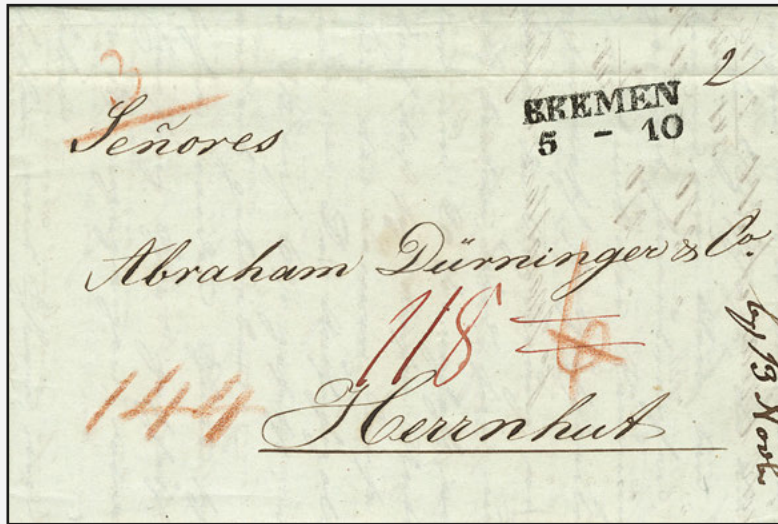 3
2
BREMEN
5 - 10
Señores
Abraham Dürninger & Co.
118
144
Herrnhut
13 Novbr